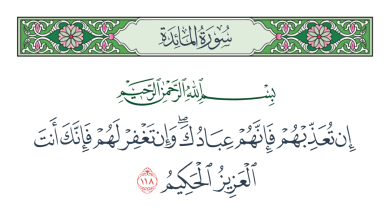 سُورَةُ المَائِدَة
بِسْمِ ٱللَّهِ ٱلرَّحْمَٰنِ ٱلرَّحِيمِ
إِن تُعَذِّبْهُمْ فَإِنَّهُمْ عِبَادُكَ ۖ وَإِن تَغْفِرْ لَهُمْ فَإِنَّكَ أَنتَ
ٱلْعَزِيزُ ٱلْحَكِيمُ ١١٨